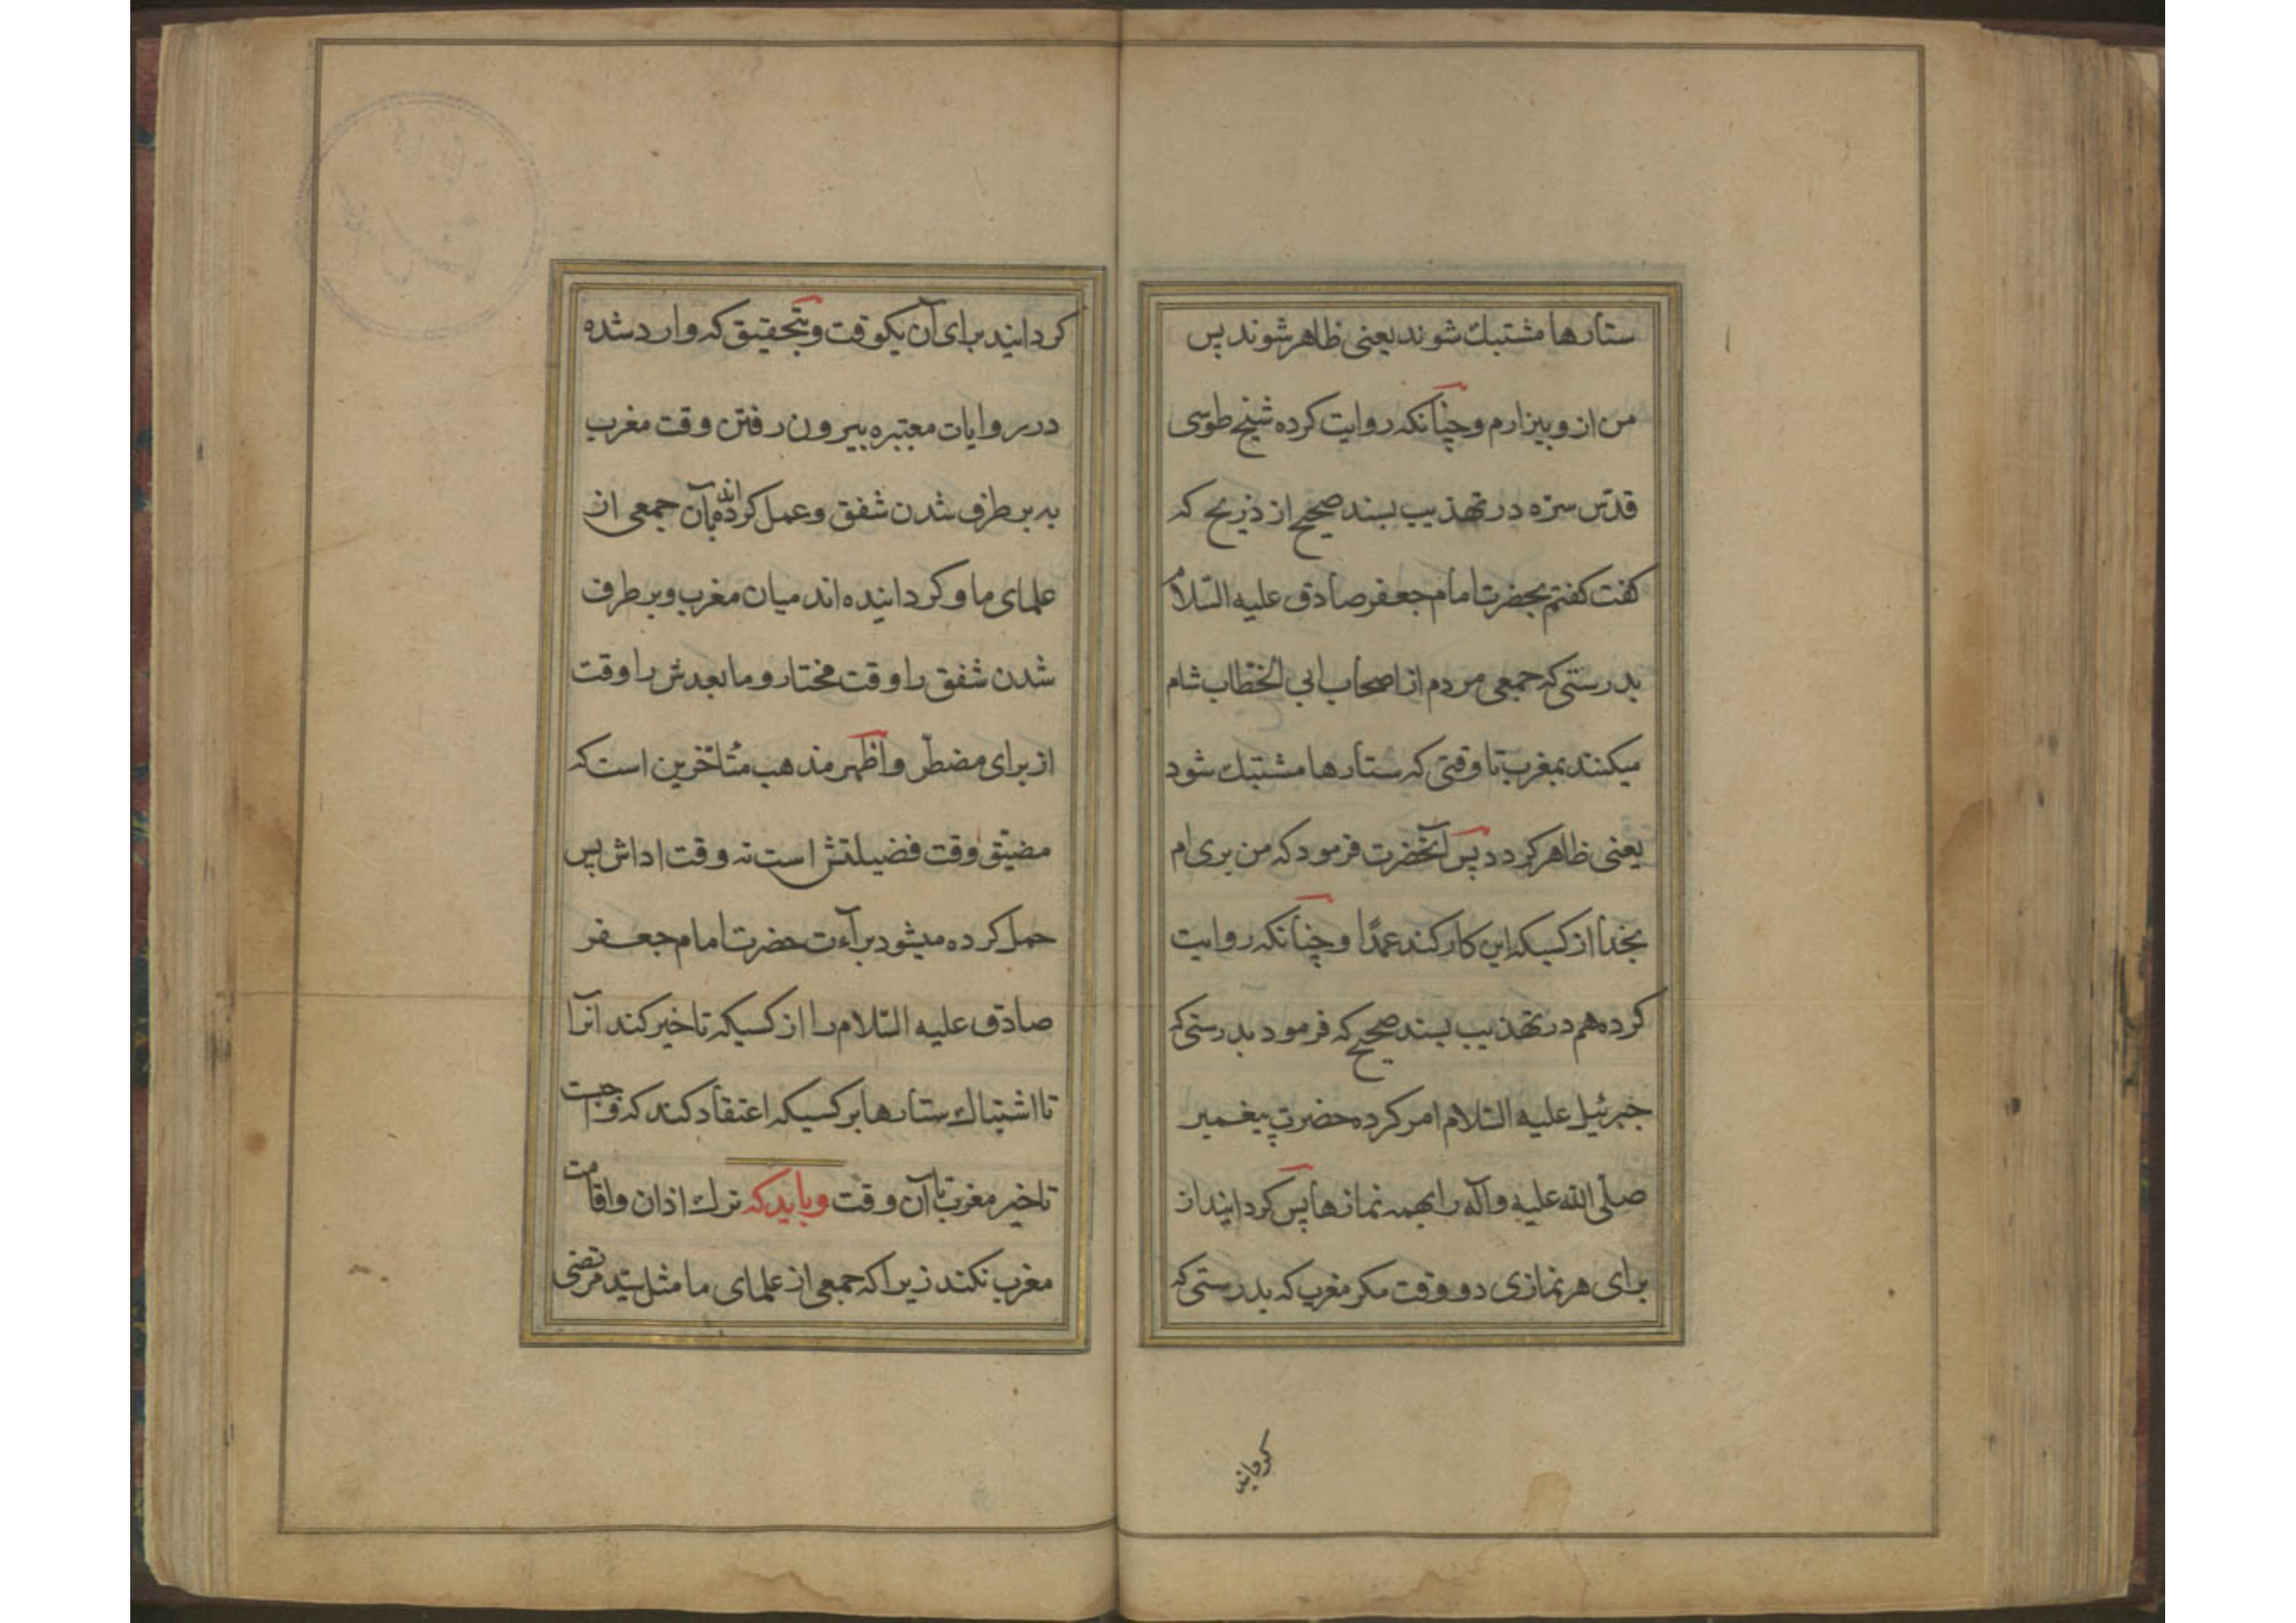 ستارها مشتبك شوند یعنی ظاهر شوند پس
من از و بیزارم و چنانکه روایت کرده شیخ طوسی
قدّس سرّه در تهذیب بسند صحیح از ذریح که
کفت کفتم بحضرت امام جعفر صادق علیه السّلام
بدرستی که جمعی مردم از اصحاب ابی الخطّاب شام
میکنند بمغرب تا وقتی که ستارها مشتبك شود
یعنی ظاهر کردد پس آنحضرت فرمود که من بری ام
بخدا از کسیکه این کار کند عمدًا و چنانکه روایت
کرده هم در تهذیب بسند صحیح که فرمود بدرستی که
جبرئیل علیه السّلام امر کرده حضرت پیغمبر
صلّی الله علیه وآله را بهمه نمازها پس کردانید از
برای هر نمازی دو وقت مکر مغرب که بدرستی که
کردانید
کردانید برای آن یکوقت و بتحقیق که وارد شده
در روایات معتبره بیرون رفتن وقت مغرب
به بر طرف شدن شفق و عمل کرده‌اند بآن جمعی از
علمای ما و کردانیده اند میان مغرب و بر طرف
شدن شفق را وقت مختار و ما بعدش را وقت
از برای مضطرّ و اظهر مذهب متأخّرین است که
مضیّق وقت فضیلتش است نه وقت اداش پس
حمل کرده میشود برآءت حضرت امام جعفر
صادق علیه السّلام را از کسیکه تاخیر کند آنرا
تا اشتباك ستارها بر کسیکه اعتقاد کند که واجبست
تاخیر مغرب تا آن وقت و باید که ترك اذان و اقامت
مغرب نکند زیرا که جمعی از علمای ما مثل سیّد مرتضی